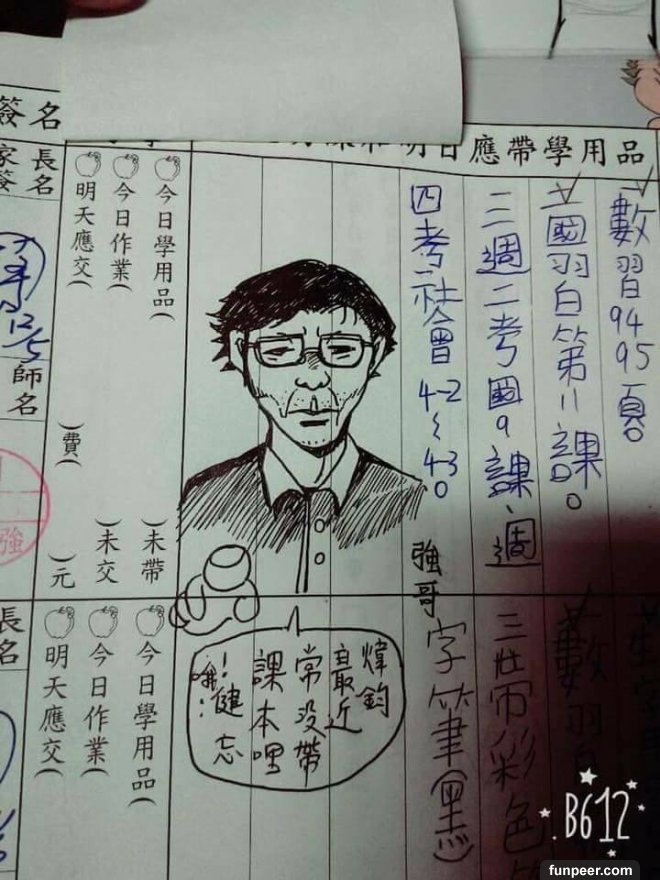 明日應帶學用品
數習94
95頁。
國習自第11課。
三、週二考國9課、週
四考社會4-2
~4-3。
強哥
煒鈞
最近
常沒帶
課本哩
!健忘
哦!
字筆(黑)
三帶彩色
數習
簽名
家長
簽名
今日學用品(
)未帶
今日作業(
)未交
明天應交(
)費(
)元
12/5
師
名
強
長
名
今日學用品(
今日作業(
明天應交(
B612
funpeer.com